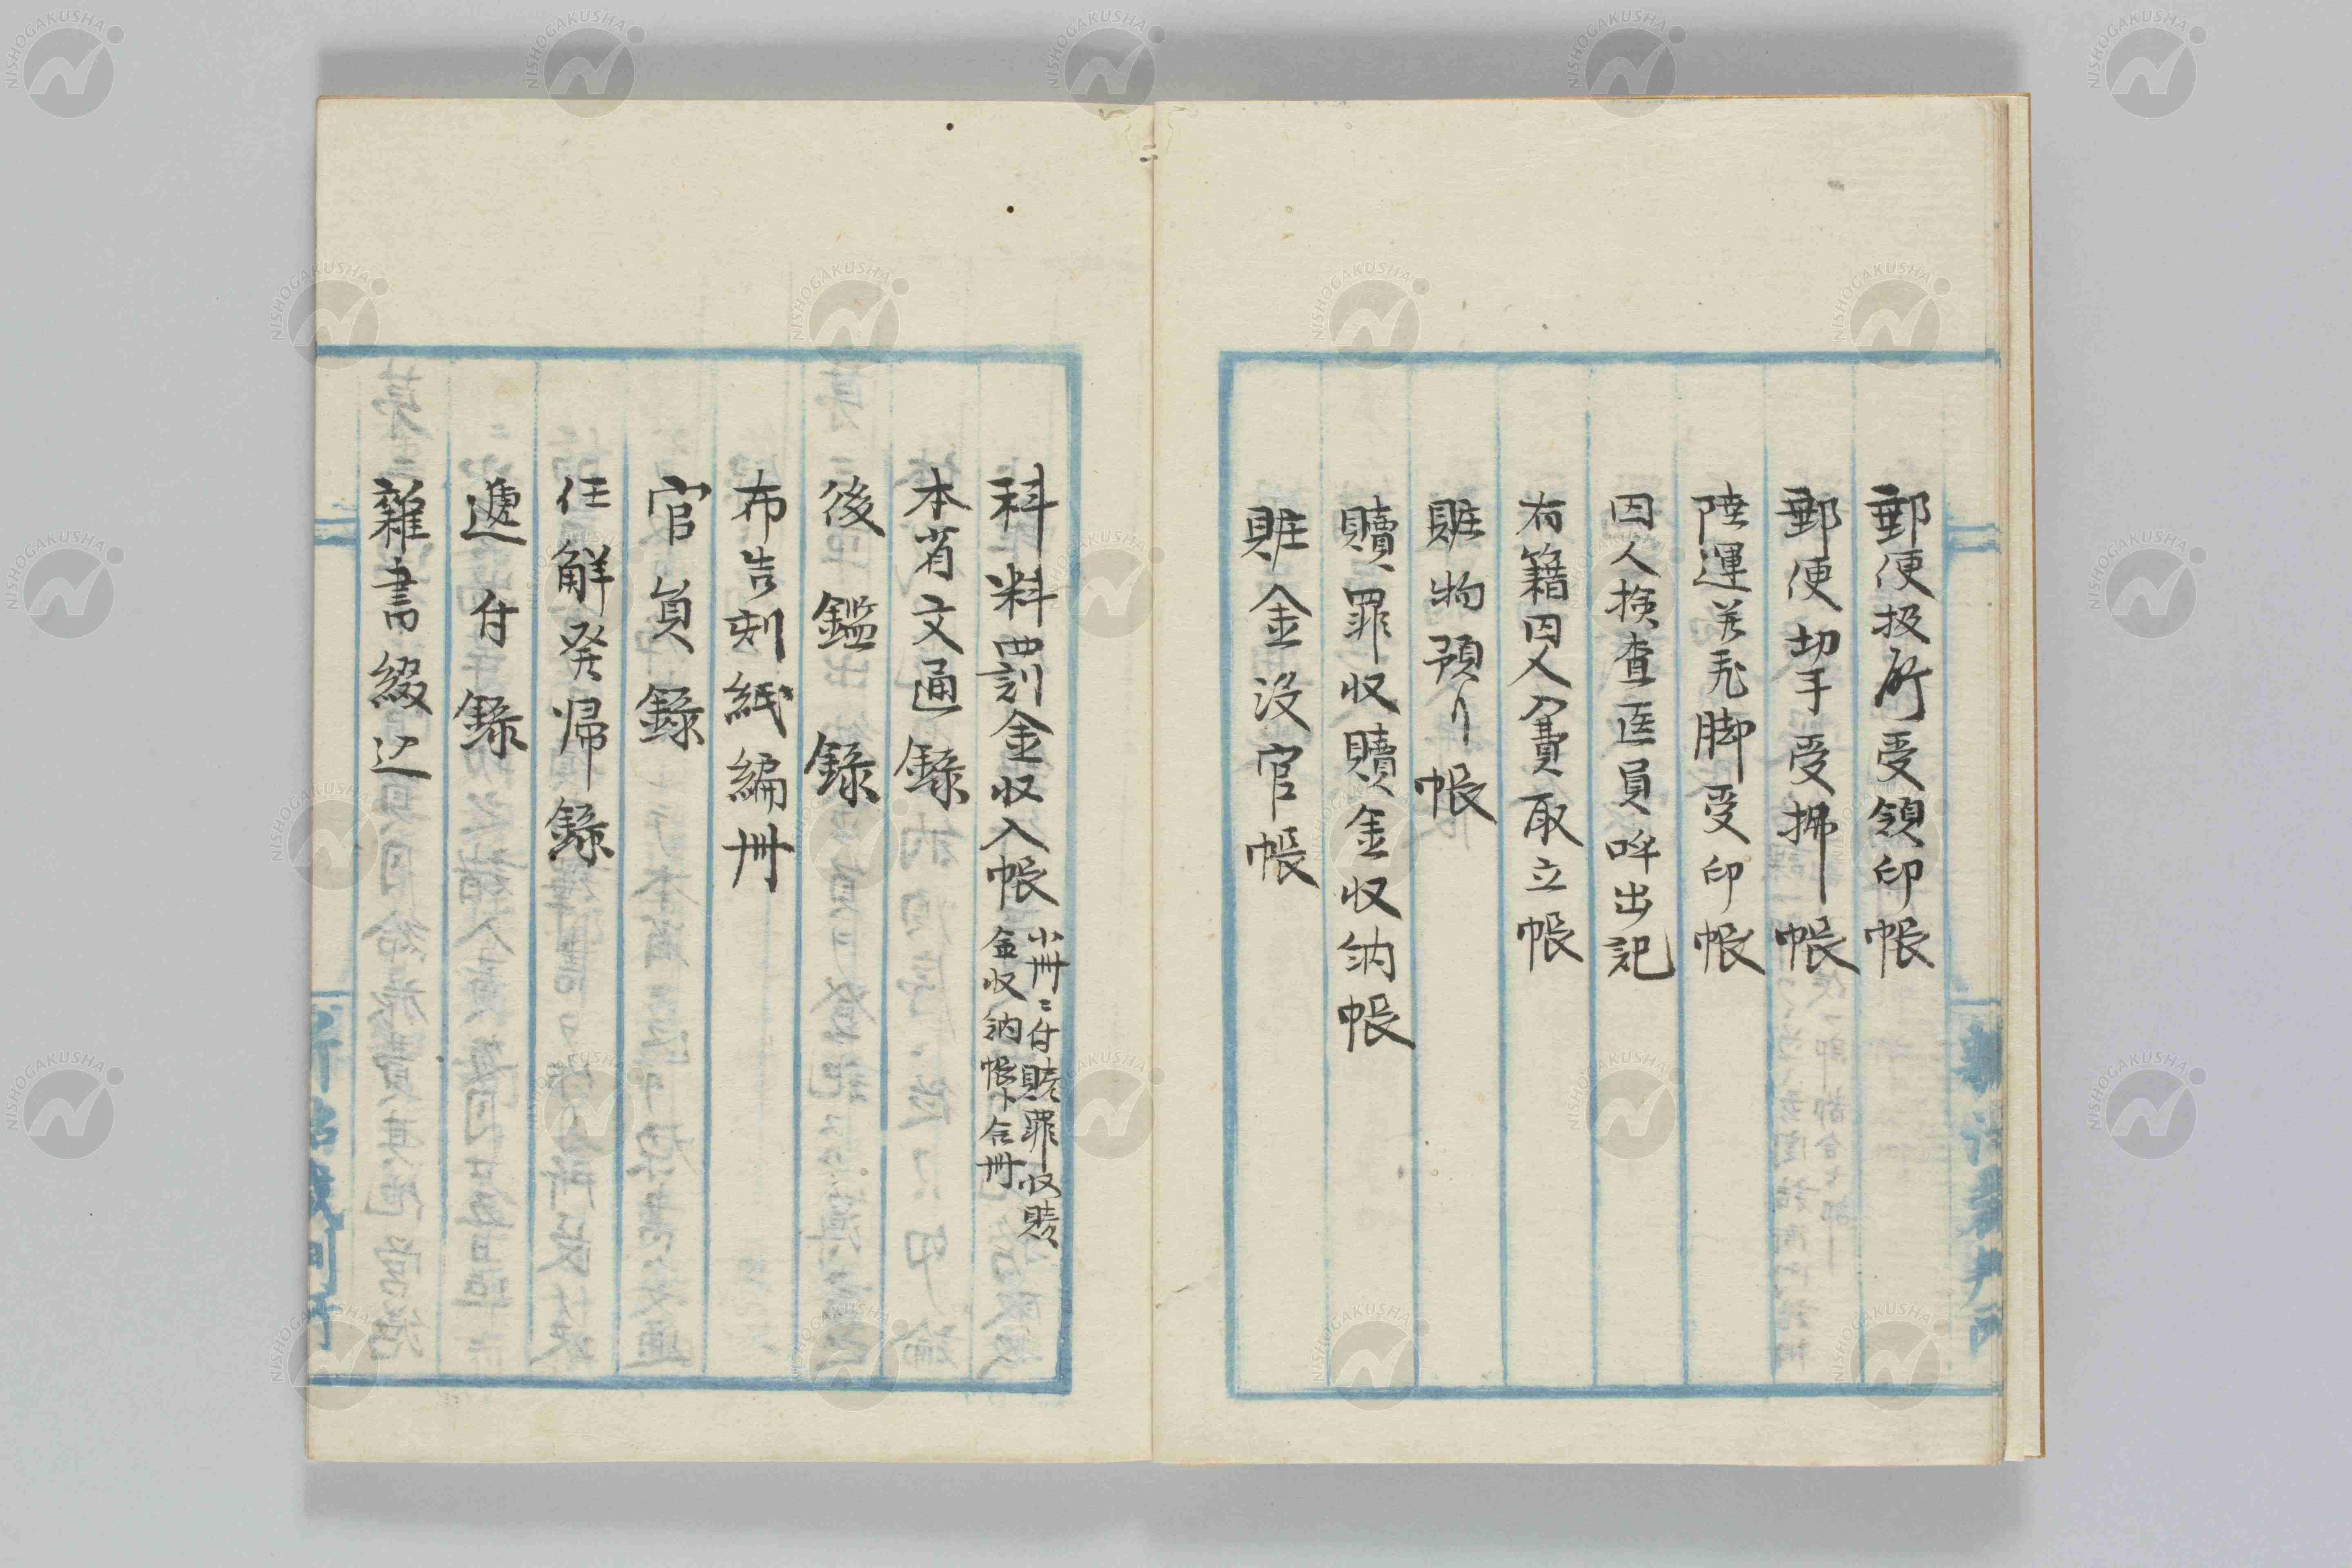 郵便扱所受領印帳
郵便切手受拂帳
陸運并飛脚受印帳
囚人検査医員呼出記
有籍囚人入費取立帳
賍物預リ帳
贖罪収贖金収納帳
賍金没官帳
科料罰金収入帳
小冊ニ付贖罪収贖
金収納帳ト合冊
本省文通録
後鑑録
布告刻紙編冊
官員録
任解発帰録
逓付録
雑書綴込